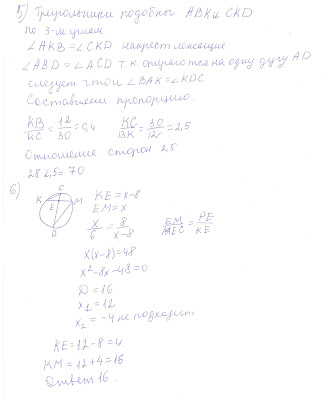 5) Треугольники подобны ABK и CKD
по 3-м углам
∠AKB = ∠CKD накрест лежащие
∠ABD = ∠ACD т.к. опираются на одну дугу AD
следует что и ∠BAK = ∠KDC
Составляем пропорцию.
KB/KC = 12/30 = 0,4 KC/BK = 30/12 = 2,5
Отношение сторон 2,5
28·2,5 = 70
6) C K M E D
KE = x-8
EM = x
x/6 = 8/(x-8) EM/MEC = PE/KE
x(x-8) = 48
x²-8x-48 = 0
D = 16
x₁ = 12
x₂ = -4 не подходит.
KE = 12-8 = 4
KM = 12+4 = 16
Ответ 16.